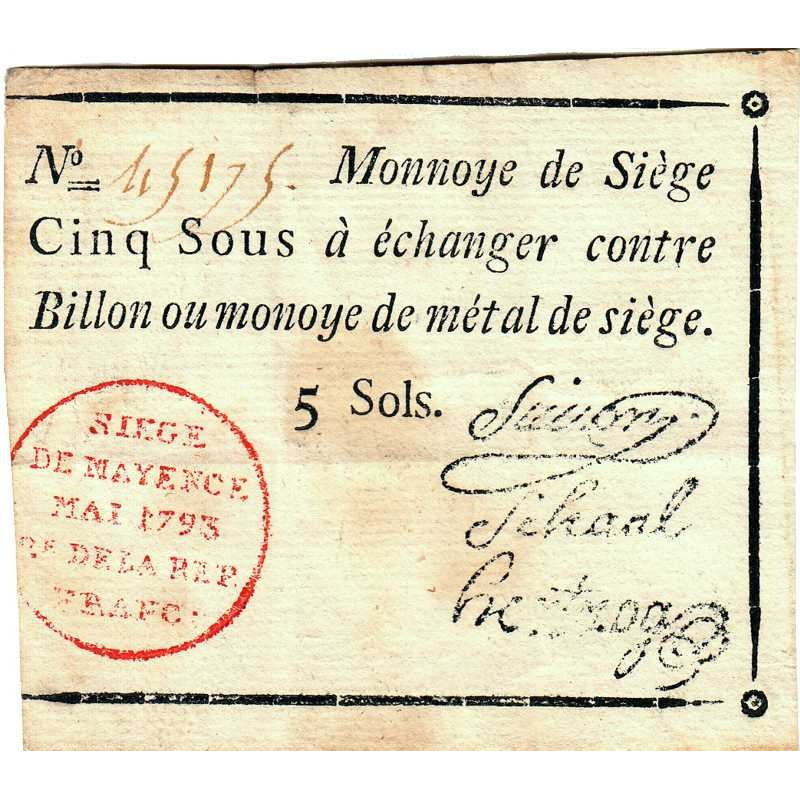 No 45175. Monnoye de Siège
Cinq Sous à échanger contre
Billon ou monoye de métal de siège.
5 Sols.
SIEGE
DE MAYENCE
MAI 1793
2e DE LA REP.
FRANC: